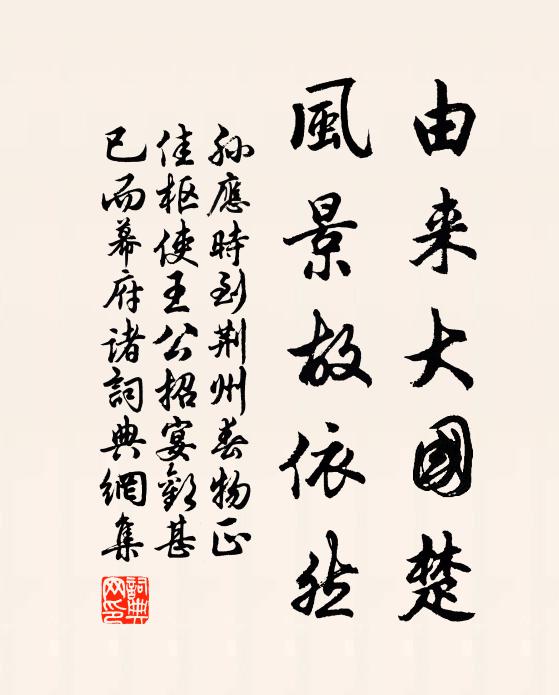 由来大國楚
風景故依然
孫應時到荆州春物正
佳枢使王公招宴歡甚
已而幕府諸詞典網集
詞典網印